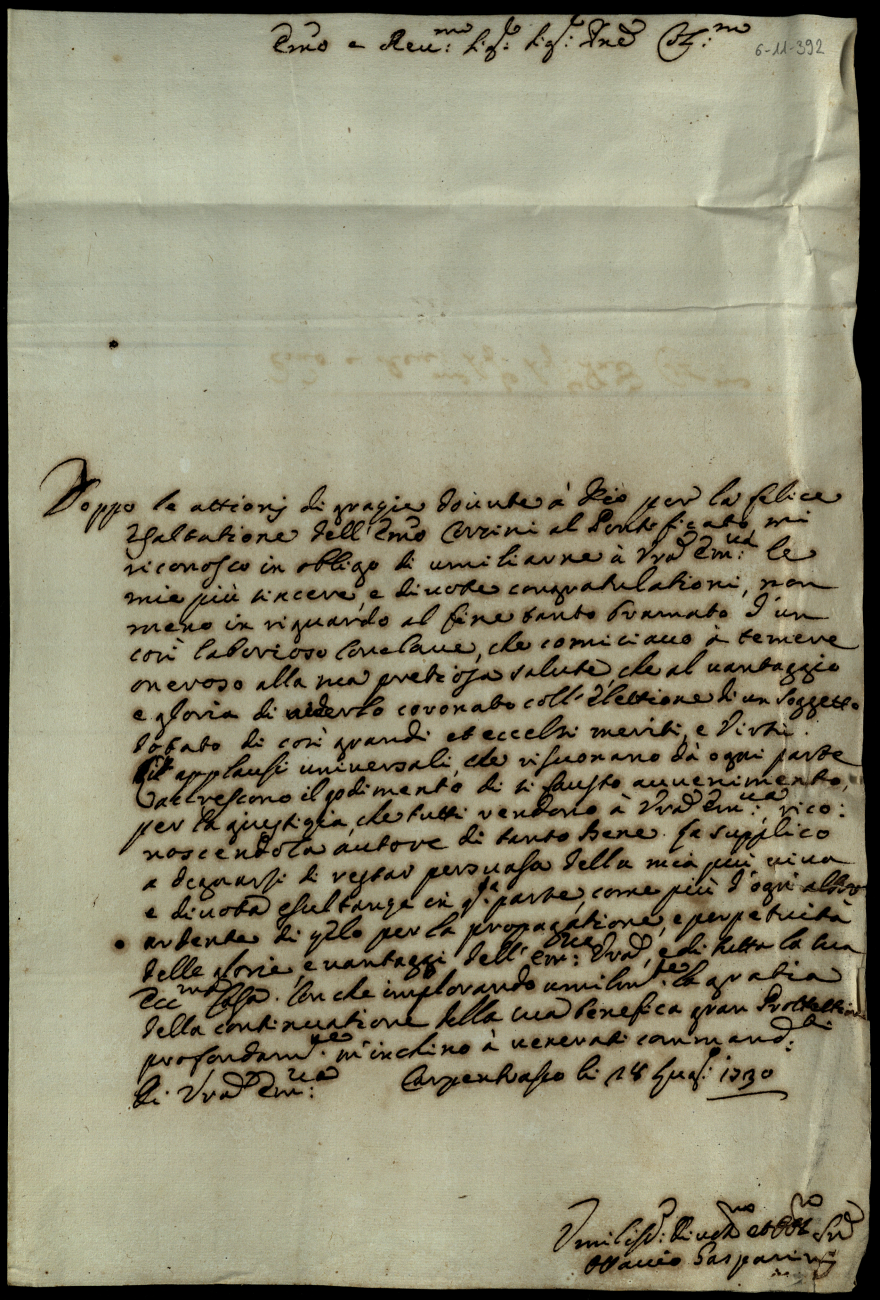 Emo e Reu:mo Sig:r Sig:r Pne Col:mo
6-11-392
Doppo le attioni di grazie douute à Dio per la felice
Esaltatione dell'Emo Corsini al Pontificato, mi
riconosco in obligo di umiliarne à Vrâ Em:za le
mie più sincere, e diuote congratulationi, non
meno in riguardo al fine tanto bramato d'un
così laborioso Conclaue, che cominciauo à temere
oneroso alla sua pretiosa salute, che al uantaggio
e gloria di uederlo coronato coll'Elettione di un soggetto
dotato di così grandi et eccelsi meriti, e Virtù.
Gli applausi uniuersali, che risuonano dà ogni parte
accrescono il godimento di sì fausto auuenimento,
per la giustizia, che tutti rendono à Vrâ Em:za, rico:
noscendola autore di tanto bene. La supplico
a degnarsi di restar persuasa della mia più uiua
e diuota esultanza in q.sta parte, come più d'ogni altro
ardente di zelo per la propagatione, e perpetuità
delle glorie, e uantaggi dell'Em:za Vrâ, e di tutta la sua
Ecc:ma Casa. Con che implorando umilm:te la gratia
della continuatione della sua benefica gran Protettione
profondam:te m'inchino à uenerati command:ti
Di Vrâ Em:za Carpentrasso li 28 Lug:o 1730
Umiliss:o Diuot:mo et Obb:mo Ser:
Ottauio Gasparini